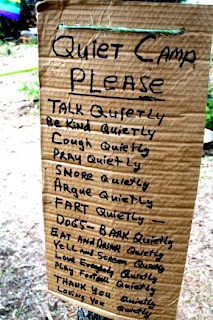 Quiet Camp
PLEASE
TALK Quietly
Be Kind Quietly
Cough Quietly
PRAY Quietly
SNORE Quietly
Argue Quietly
FART Quietly —
DOGS - BARK Quietly
EAT AND DRINK Quietly
Yell and Scream Quietly
Love Everybody Quietly
Play Football Quietly
THANK YOU Quietly
LOVING YOU Quietly